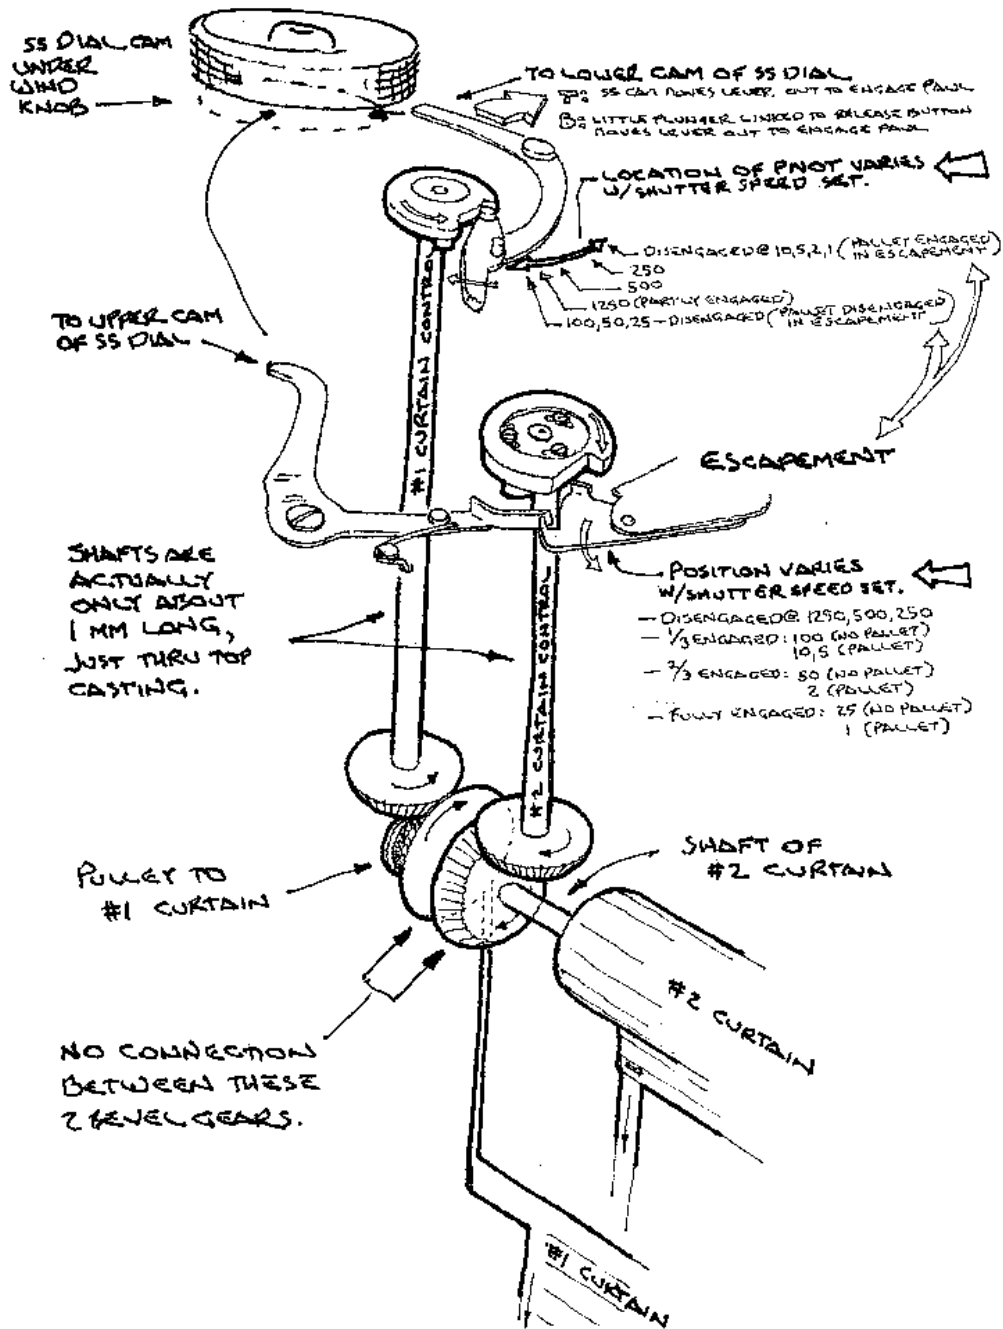 SS DIAL CAM
UNDER
WIND
KNOB
TO LOWER CAM OF SS DIAL
T: SS CAM MOVES LEVER OUT TO ENGAGE PAWL
B: LITTLE PLUNGER LINKED TO RELEASE BUTTON
MOVES LEVER OUT TO ENGAGE PAWL
LOCATION OF PIVOT VARIES
W/SHUTTER SPEED SET.
DISENGAGED @ 10,5,2,1 (PALLET ENGAGED
IN ESCAPEMENT)
250
500
1250 (PARTLY ENGAGED)
100,50,25 - DISENGAGED (PALLET DISENGAGED
IN ESCAPEMENT)
#1 CURTAIN CONTROL
TO UPPER CAM
OF SS DIAL
ESCAPEMENT
SHAFTS ARE
ACTUALLY
ONLY ABOUT
1 MM LONG,
JUST THRU TOP
CASTING.
POSITION VARIES
W/SHUTTER SPEED SET.
- DISENGAGED @ 1250,500,250
- 1/3 ENGAGED: 100 (NO PALLET)
10,5 (PALLET)
- 2/3 ENGAGED: 50 (NO PALLET)
2 (PALLET)
- FULLY ENGAGED: 25 (NO PALLET)
1 (PALLET)
#2 CURTAIN CONTROL
PULLEY TO
#1 CURTAIN
SHAFT OF
#2 CURTAIN
#2 CURTAIN
NO CONNECTION
BETWEEN THESE
2 BEVEL GEARS.
#1 CURTAIN